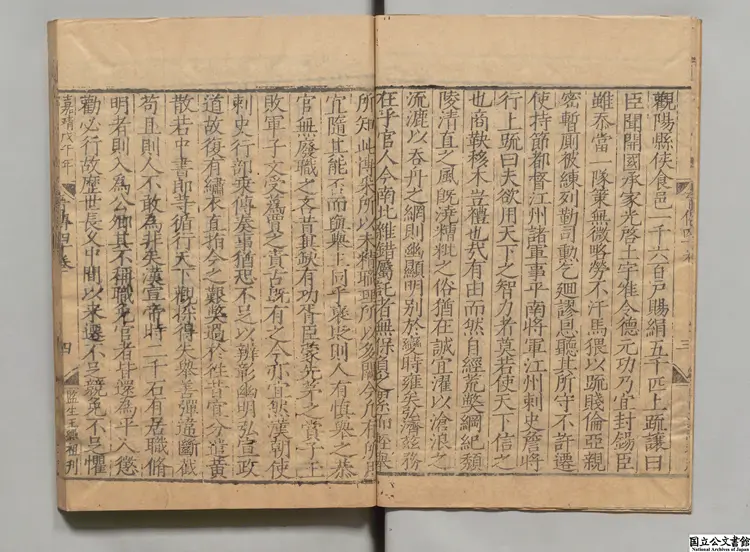 觀陽縣侯食邑一千六百戶賜絹五千匹上疏讓曰
臣聞開國承家光啓土宇唯令德元功乃宜封錫臣
雖忝當一隊策無微略勞不汗馬猥以疏賤倫亞親
密暫厠被練列勤司勳乞廻謬恩聽其所守不許遷
使持節都督江州諸軍事平南將軍江州刺史詹將
行上疏曰夫欲用天下之智力者莫若使天下信之
也商鞅移木豈禮也㢤有由而然自經荒弊綱紀頹
陵清直之風旣澆糟粃之俗猶在誠宜濯以滄浪之
流漉以吞舟之網則幽顯明別於變時雍矣弘濟茲務
在乎官人今南北雜錯屬託者無保負之累而輕舉
三
所知此博采所以未精職理所以多闕今凡有所用
宜隨其能否而與舉主同乎襃貶則人有慎舉之恭
官無廢職之吝昔冀缺有功胥臣蒙先茅之賞子玉
敗軍子文受蔿賈之責古旣有之今亦宜然漢朝使
刺史行部乘傳奏事猶恐不足以辨彰幽明弘宣政
道故復有繡衣直指今之艱弊過於往昔宜分遣黃
散若中書郎等循行天下觀採得失舉善彈違斷截
苟且則人不敢為非矣漢宣帝時二千石有居職脩
明者則入為公卿其不稱職免官者皆還為平人懲
勸必行故歷世長久中間以來遷不足競免不足懼
嘉靖戊午年 四 監生王
国立公文書館
National Archives of Japan